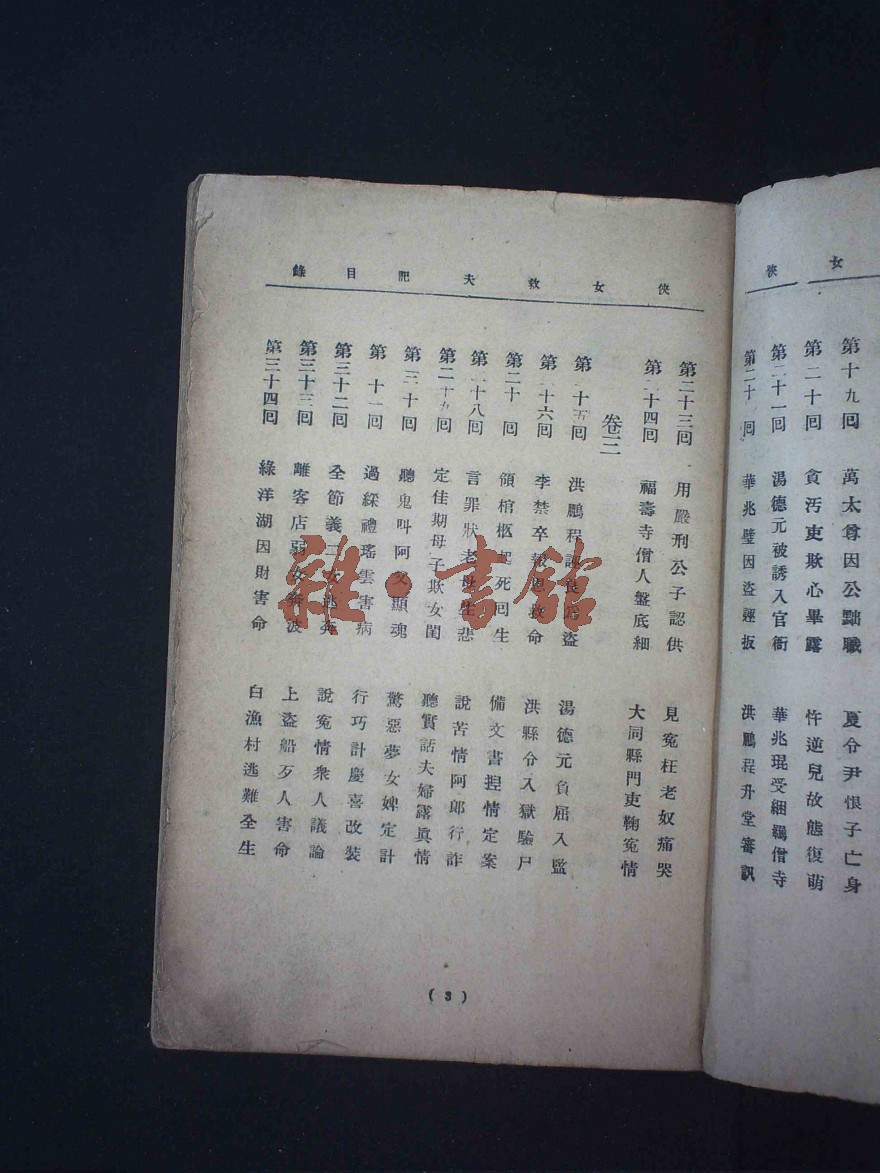 女俠
第十九回 萬太尊因公黜職 夏令尹恨子亡身
第二十回 貪汚吏欺心畢露 忤逆兒故態復萌
第二十一回 湯德元被誘入官衙 華兆琨受綑羈僧寺
第二十 回 華兆璧因盜誣扳 洪鵬程升堂審訊
俠女救夫記目錄
第二十三回 用嚴刑公子認供 見冤枉老奴痛哭
第二十四回 福壽寺僧人盤底細 大同縣門吏鞠冤情
卷三
第 十五回 洪鵬程誣良爲盜 湯德元負屈入監
第 十六回 李禁卒報恩救命 洪縣令入獄驗尸
第二十 回 領棺柩起死回生 備文書揑情定案
第 十八回 言罪狀老母生悲 說苦情阿郎行詐
第二十九回 定佳期母子欺女閨 聽實話夫婦露眞情
第三十回 聽鬼叫阿父顯魂 驚惡夢女婢定計
第 十一回 過綵禮瑤雲害病 行巧計慶喜改裝
第三十二回 全節義二女逃奔 說冤情衆人議論
第三十三回 離客店弱女奔波 上盜船歹人害命
第三十四回 綠洋湖因財害命 白漁村逃難全生
(3)
雜·書館